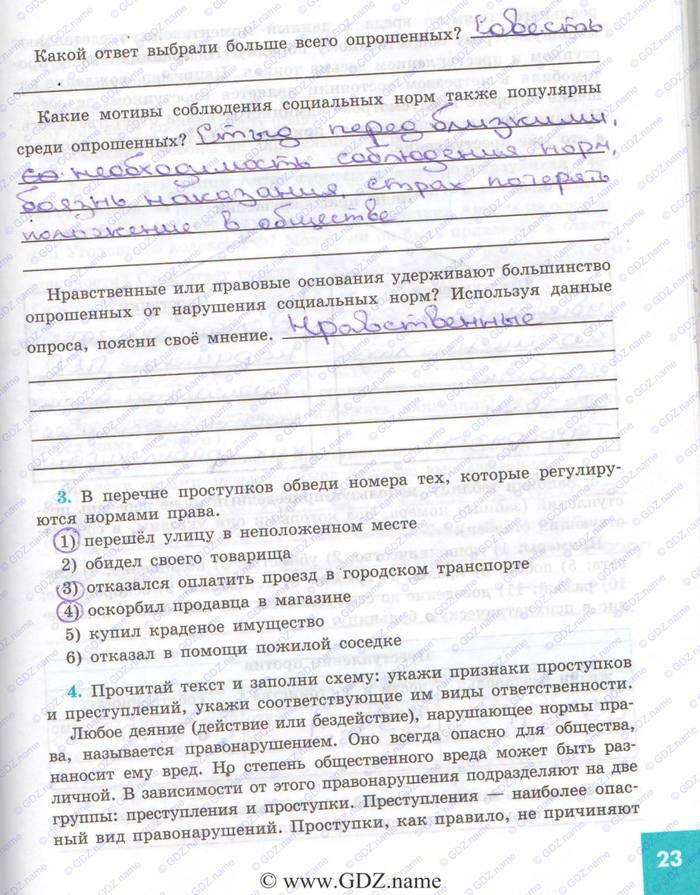 Какой ответ выбрали больше всего опрошенных? Совесть
Какие мотивы соблюдения социальных норм также популярны
среди опрошенных? Стыд перед близкими,
необходимость соблюдения норм,
боязнь наказания, страх потерять
положение в обществе
Нравственные или правовые основания удерживают большинство
опрошенных от нарушения социальных норм? Используя данные
опроса, поясни своё мнение. Нравственные
3. В перечне проступков обведи номера тех, которые регулиру-
ются нормами права.
1) перешёл улицу в неположенном месте
2) обидел своего товарища
3) отказался оплатить проезд в городском транспорте
4) оскорбил продавца в магазине
5) купил краденое имущество
6) отказал в помощи пожилой соседке
4. Прочитай текст и заполни схему: укажи признаки проступков
и преступлений, укажи соответствующие им виды ответственности.
Любое деяние (действие или бездействие), нарушающее нормы пра-
ва, называется правонарушением. Оно всегда опасно для общества,
наносит ему вред. Но степень общественного вреда может быть раз-
личной. В зависимости от этого правонарушения подразделяют на две
группы: преступления и проступки. Преступления — наиболее опас-
ный вид правонарушений. Проступки, как правило, не причиняют
23
© www.GDZ.name